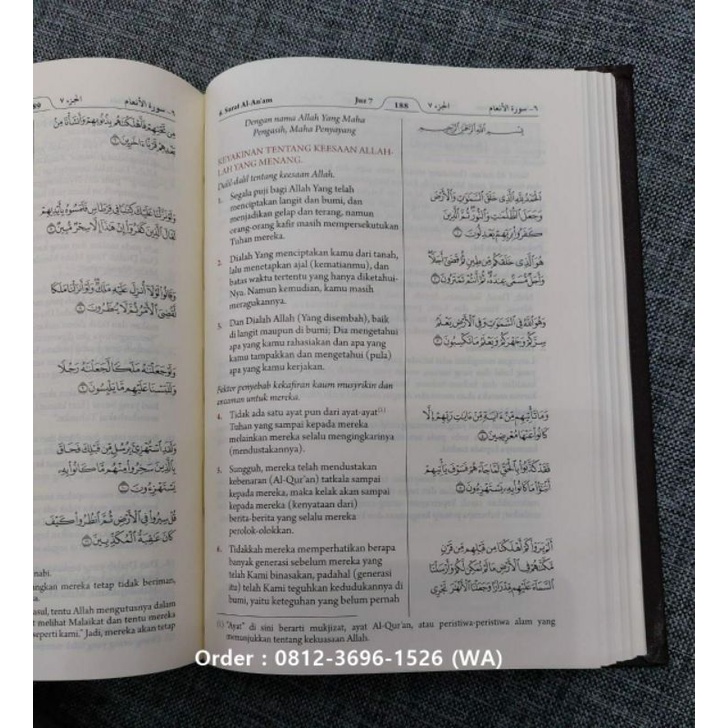 ٦- سورة الأنعام
الجزء ٧
89
6. Surat Al-An'am
Juz 7
188
الجزء ٧
٦- سورة الأنعام
Dengan nama Allah Yang Maha
Pengasih, Maha Penyayang
KEYAKINAN TENTANG KEESAAN ALLAH-
LAH YANG MENANG.
Dalil-dalil tentang keesaan Allah.
1. Segala puji bagi Allah Yang telah
menciptakan langit dan bumi, dan
menjadikan gelap dan terang, namun
orang-orang kafir masih mempersekutukan
Tuhan mereka.
2. Dialah Yang menciptakan kamu dari tanah,
lalu menetapkan ajal (kematianmu), dan
batas waktu tertentu yang hanya diketahui-
Nya. Namun kemudian, kamu masih
meragukannya.
3. Dan Dialah Allah (Yang disembah), baik
di langit maupun di bumi; Dia mengetahui
apa yang kamu rahasiakan dan apa yang
kamu tampakkan dan mengetahui (pula)
apa yang kamu kerjakan.
Faktor penyebab kekafiran kaum musyrikin dan
ancaman untuk mereka.
4. Tidak ada satu ayat pun dari ayat-ayat(1)
Tuhan yang sampai kepada mereka
melainkan mereka selalu mengingkarinya
(mendustakannya).
5. Sungguh, mereka telah mendustakan
kebenaran (Al-Qur'an) tatkala sampai
kepada mereka, maka kelak akan sampai
kepada mereka (kenyataan dari)
berita-berita yang selalu mereka
perolok-olokkan.
6. Tidakkah mereka memperhatikan berapa
banyak generasi sebelum mereka yang
telah Kami binasakan, padahal (generasi
itu) telah Kami teguhkan kedudukannya di
bumi, yaitu keteguhan yang belum pernah
بِسْمِ اللَّهِ الرَّحْمَٰنِ الرَّحِيمِ
الْحَمْدُ لِلَّهِ الَّذِي خَلَقَ السَّمَٰوَٰتِ وَالْأَرْضَ
وَجَعَلَ الظُّلُمَٰتِ وَالنُّورَ ثُمَّ الَّذِينَ
كَفَرُوا بِرَبِّهِمْ يَعْدِلُونَ ١
هُوَ الَّذِي خَلَقَكُم مِّن طِينٍ ثُمَّ قَضَىٰ أَجَلًا
وَأَجَلٌ مُّسَمًّى عِندَهُ ثُمَّ أَنتُمْ تَمْتَرُونَ ٢
وَهُوَ اللَّهُ فِي السَّمَٰوَٰتِ وَفِي الْأَرْضِ يَعْلَمُ
سِرَّكُمْ وَجَهْرَكُمْ وَيَعْلَمُ مَا تَكْسِبُونَ ٣
وَمَا تَأْتِيهِم مِّنْ ءَايَةٍ مِّنْ ءَايَٰتِ رَبِّهِمْ إِلَّا
كَانُوا عَنْهَا مُعْرِضِينَ ٤
فَقَدْ كَذَّبُوا بِالْحَقِّ لَمَّا جَاءَهُمْ فَسَوْفَ يَأْتِيهِمْ
أَنبَٰؤُا مَا كَانُوا بِهِ يَسْتَهْزِءُونَ ٥
أَلَمْ يَرَوْا كَمْ أَهْلَكْنَا مِن قَبْلِهِم مِّن قَرْنٍ
مَّكَّنَّٰهُمْ فِي الْأَرْضِ مَا لَمْ نُمَكِّن لَّكُمْ وَأَرْسَلْنَا
السَّمَاءَ عَلَيْهِم مِّدْرَارًا وَجَعَلْنَا الْأَنْهَٰرَ تَجْرِي
(1) "Ayat" di sini berarti mukjizat, ayat Al-Qur'an, atau peristiwa-peristiwa alam yang
menunjukkan tentang kekuasaan Allah.
مِن تَحْتِهِمْ فَأَهْلَكْنَٰهُم بِذُنُوبِهِمْ وَأَنشَأْنَا مِنْ
بَعْدِهِمْ قَرْنًا ءَاخَرِينَ ٦
وَلَوْ نَزَّلْنَا عَلَيْكَ كِتَٰبًا فِي قِرْطَاسٍ فَلَمَسُوهُ بِأَيْدِيهِمْ
لَقَالَ الَّذِينَ كَفَرُوا إِنْ هَٰذَا إِلَّا سِحْرٌ مُّبِينٌ ٧
وَقَالُوا لَوْلَا أُنزِلَ عَلَيْهِ مَلَكٌ وَلَوْ أَنزَلْنَا مَلَكًا
لَّقُضِيَ الْأَمْرُ ثُمَّ لَا يُنظَرُونَ ٨
وَلَوْ جَعَلْنَٰهُ مَلَكًا لَّجَعَلْنَٰهُ رَجُلًا
وَلَلَبَسْنَا عَلَيْهِم مَّا يَلْبِسُونَ ٩
وَلَقَدِ اسْتُهْزِئَ بِرُسُلٍ مِّن قَبْلِكَ فَحَاقَ
بِالَّذِينَ سَخِرُوا مِنْهُم مَّا كَانُوا بِهِ
يَسْتَهْزِءُونَ ١٠
قُلْ سِيرُوا فِي الْأَرْضِ ثُمَّ انظُرُوا كَيْفَ
كَانَ عَٰقِبَةُ الْمُكَذِّبِينَ ١١
nabi.
angkan mereka tetap tidak beriman,
asul, tentu Allah mengutusnya dalam
t melihat Malaikat dan tentu mereka
seperti kami." Jadi, mereka akan tetap
Order : 0812-3696-1526 (WA)